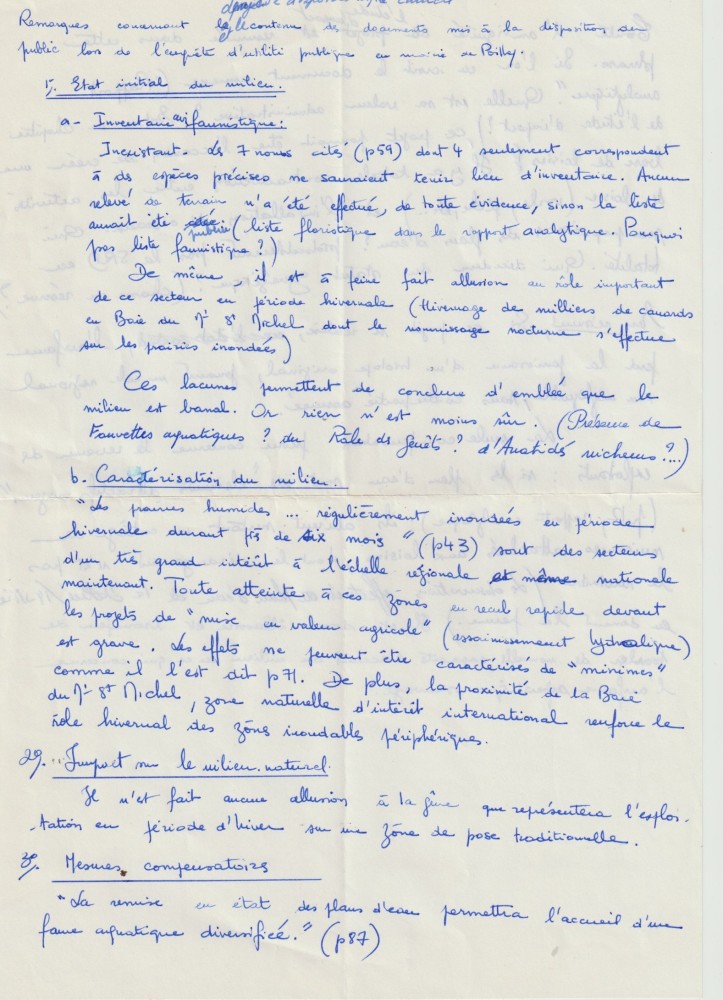 Remarques concernant le contenu des documents mis à la disposition du
public lors de l'enquête d'utilité publique en mairie de Poilley.
1°/. Etat initial du milieu.
a - Inventaire avifaunistique :
Inexistant. Les 7 noms cités (p59) dont 4 seulement correspondent
à des espèces précises ne sauraient tenir lieu d'inventaire. Aucun
relevé de terrain n'a été effectué, de toute évidence, sinon la liste
aurait été publiée (liste floristique dans le rapport analytique. Pourquoi
pas liste faunistique ?)
De même, il est à peine fait allusion au rôle important
de ce secteur en période hivernale (Hivernage de milliers de canards
en Baie du Mt St Michel dont le nourrissage nocturne s'effectue
sur les prairies inondées)
Ces lacunes permettent de conclure d'emblée que le
milieu est banal. Or rien n'est moins sûr. (Présence de
Fauvettes aquatiques ? du Râle des Genêts ? d'Anatidés nicheurs ?...)
b. Caractérisation du milieu.
"Les prairies humides ... régulièrement inondées en période
hivernale durant près de six mois" (p43) sont des secteurs
d'un très grand intérêt à l'échelle régionale et même nationale
maintenant. Toute atteinte à ces zones en recul rapide devant
les projets de "mise en valeur agricole" (assainissement hydraulique)
est grave. Les effets ne peuvent être caractérisés de "minimes"
comme il l'est dit p71. De plus, la proximité de la Baie
du Mt St Michel, zone naturelle d'intérêt international renforce le
rôle hivernal des zones inondables périphériques.
2°/. Impact sur le milieu naturel.
Il n'est fait aucune allusion à la gêne que représentera l'exploi-
-tation en période d'hiver sur une zone de pose traditionnelle.
3°/. Mesures compensatoires
"La remise en état des plans d'eau permettra l'accueil d'une
faune aquatique diversifiée." (p87)